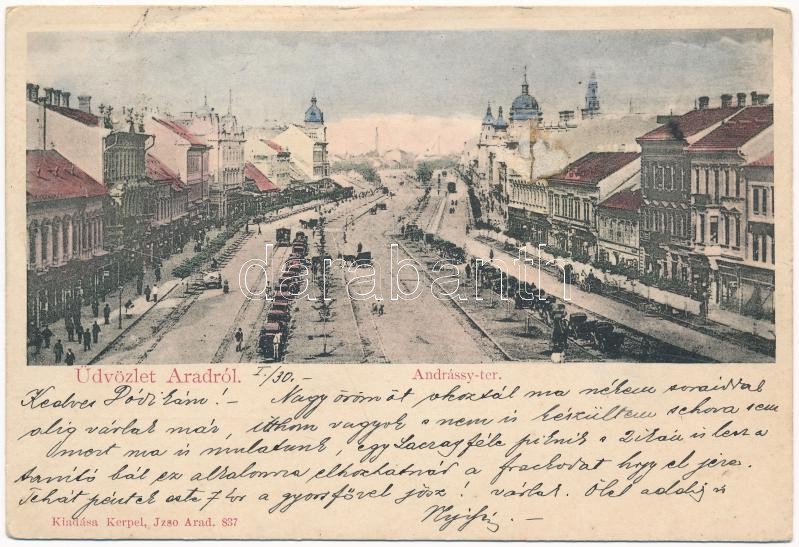 darabanth
Üdvözlet Aradról. I/30. –
Andrássy-ter.
Kedves Dódikám! – Nagy örömöt okoztál ma nékem soraiddal
alig várlak már, itthon vagyok s nem is készültem sehova sem
mert ma is mulatunk, egy féle piknik s 2ikán is lesz a
tanító bál ez alkalomra elhozhatnád a frackodat hogy el jére.
Tehát péntek este 7 kor a gyorsfővel jösz! várlak. Ölel addig is
Kiadása Kerpel, Jzso Arad. 837